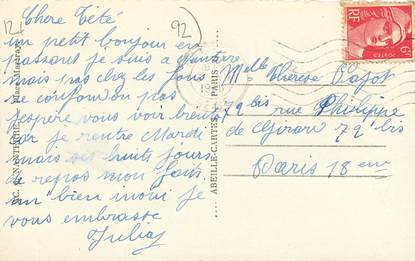 12
92
Chere Tété
un petit bonjour en
passant je suis a
mais pas chez les fous
ne confondon pas
jespère vous voir bientôt
car je rentre Mardi
mais ses huits jours
de repos mon faits
un bien moui je
vous embrasse
Julia
ABEILLE-CARTES - PARIS
RF
6F
Melle Thérèse
79 bis rue Philippe
de Girard 79 bis
Paris 18 eme